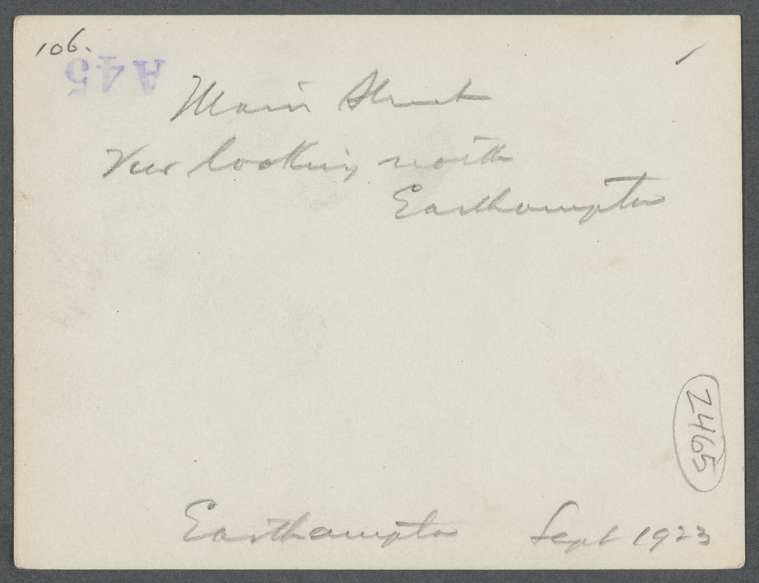 106.
A45
Main Street
View looking north
Easthampton
2465
Easthampton Sept 1923